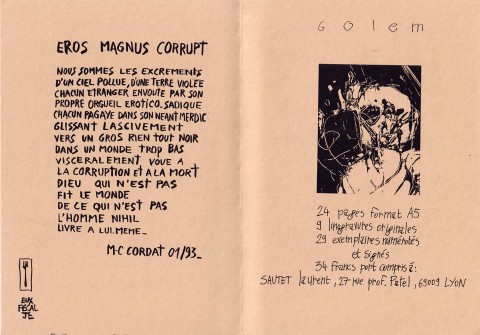 EROS MAGNUS CORRUPT
NOUS SOMMES LES EXCREMENTS
D'UN CIEL POLLUE, D'UNE TERRE VIOLEE
CHACUN ETRANGER ENVOUTE PAR SON
PROPRE ORGUEIL EROTICO. SADIQUE
CHACUN PAGAYE DANS SON NEANT MERDIC
GLISSANT LASCIVEMENT
VERS UN GROS RIEN TOUT NOIR
DANS UN MONDE TROP BAS
VISCERALEMENT VOUE A
LA CORRUPTION ET A LA MORT
DIEU QUI N'EST PAS
FIT LE MONDE
DE CE QUI N'EST PAS
L'HOMME NIHIL
LIVRE A LUI. MEME_
M-C CORDAT 01/93_
EUX
FÉCAL
JE
Golem
24 pages format A5
9 linogravures originales
29 exemplaires numérotés
et signés
34 francs port compris :
SAUTET Laurent, 27 rue prof. Patel, 69009 LYON